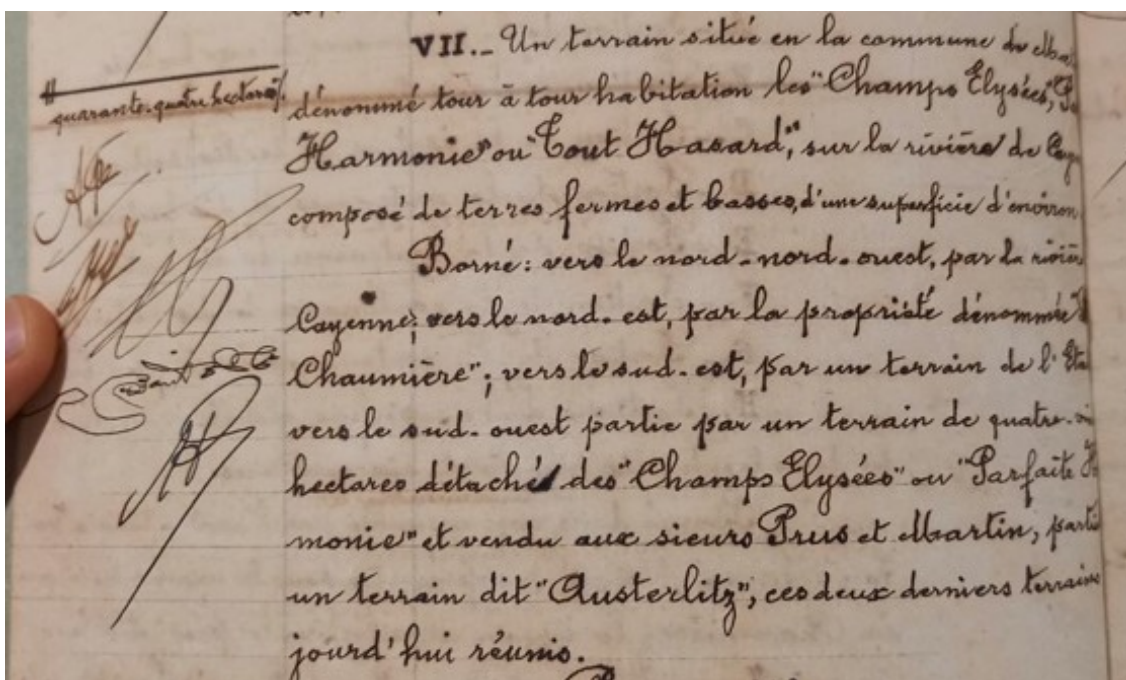 VII._ Un terrain situé en la commune de Ma
quarante-quatre hectares
dénommé tour à tour habitation les "Champs Elysées", "Pa
Harmonie" ou "Tout Hasard", sur la rivière de Cay
composé de terres fermes et basses, d'une superficie d'environ
Borné : vers le nord-nord-ouest, par la rivière
Cayenne; vers le nord-est, par la propriété dénommée
Chaumière"; vers le sud-est, par un terrain de l'Eta
vers le sud-ouest partie par un terrain de quatre-vi
hectares détaché des "Champs Elysées" ou "Parfaite H
monie" et vendu aux sieurs Prus et Martin, partie
un terrain dit "Austerlitz", ces deux derniers terrains
jourd'hui réunis.